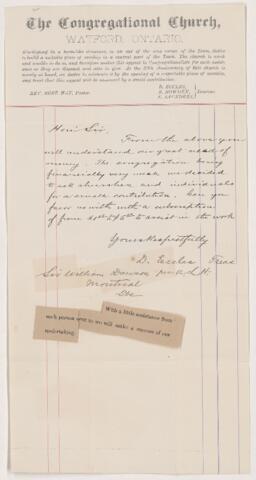 The Congregational Church,
WATFORD, ONTARIO.
Worshipping in a
to build a suitable place of worship in a central part of the Town. The church is weak
and unable to do so, and therefore makes this appeal to Congregationalists for such assist-
ance as they are disposed and able to give. At the 25th Anniversary of this church is
nearly at hand, we desire to celebrate it by the opening of a respectable place of worship,
and trust that this appeal will be answered by a small contribution.
REV. ROBT HAY, Pastor.
D. ECCLES,
Deacons
Hon'r Sir,
From the above you
will understand our great need of
money. The congregation being
financially very weak we decided
to ask churches and individuals
for a small contribution. Can you
favor us with with a subscription
of from to assist in the work
Yours Respectfully
D. Eccles Treas
Sir William Dawson
Montreal
Que
With a little assistance from
each person sent to we will make a success of our
undertaking.